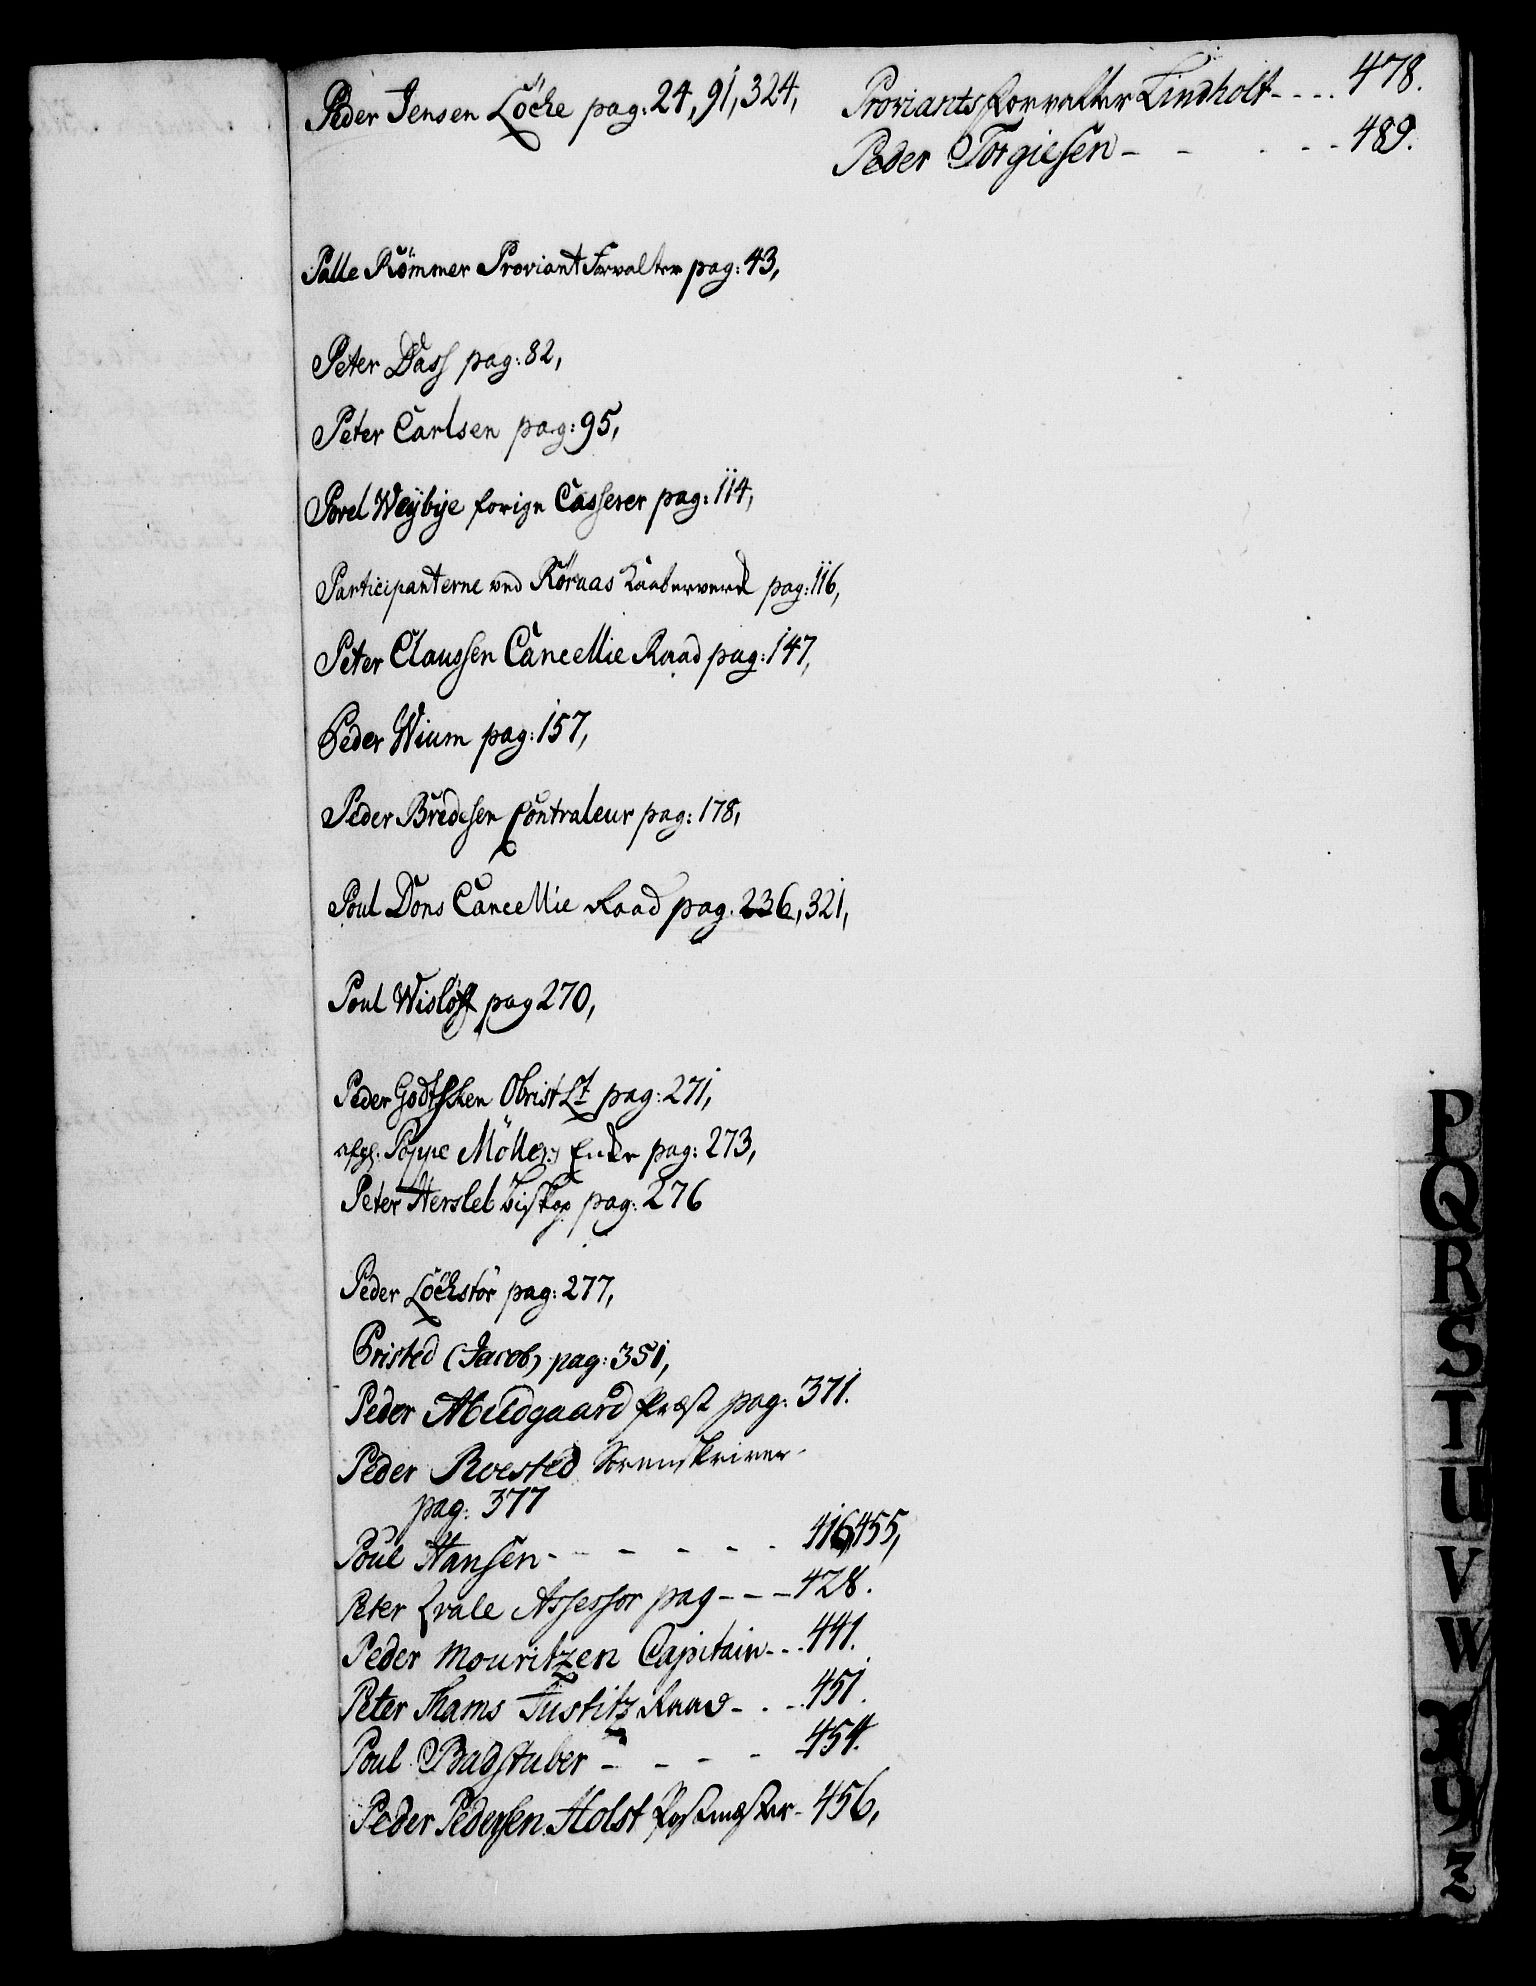 Peder Jensen Löcke pag: 24, 91, 324,
Palle Römmer Proviant Forvalter pag: 43,
Peter Dass pag: 82,
Peter Carlsen pag: 95,
Povel Weybye forige Casserer pag: 114,
Participanterne ved Röraas Kaaberverk pag: 116,
Peter Claussen Cancellie Raad pag: 147,
Peder Wium pag: 157,
Peder Bredesen Contraleur pag: 178,
Poul Dons Cancellie Raad pag. 236, 321,
Poul Wislöff pag 270,
Peder Godtsken Obrist Lt pag: 271,
afg: Poppe Möllers Enke pag: 273,
Peter Hersleb Biskop pag: 276
Peder Löckstör pag: 277,
Pristed (Jacob) pag: 351,
Peder Abildgaard Præst pag: 371.
Peder Roested Sorenskriver
pag: 377
Poul Hansen - - - - - 416, 455,
Peter Qvale Assessor pag - - - 428.
Peder Mouritzen Capitain - - 441.
Peter Thams Justitz Raad - - - 451.
Poul Badstuber - - - - 454.
Peder Pedersen Holst Postmester - 456,
Proviantsforvalter Lindholt - - - - 478.
Peder Torgiesen - - - - - 489.
P
Q
R
S
T
U
V
W
X
Y
Z